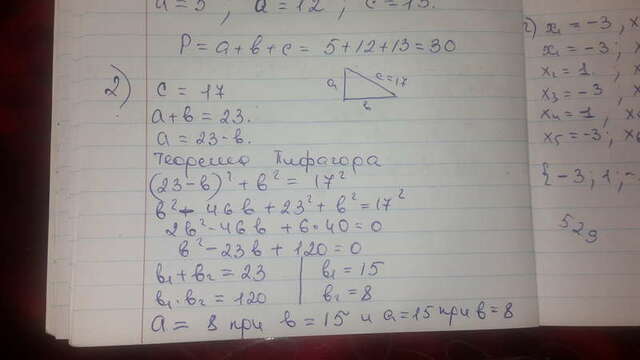 a = 5 ; a = 12 ; c = 13.
P = a + b + c = 5 + 12 + 13 = 30
2)
c = 17
a
c = 17
b
a + b = 23.
a = 23 - b.
Теорема Пифагора
(23 - b)² + b² = 17²
b² - 46b + 23² + b² = 17²
2b² - 46b + 6·40 = 0
b² - 23b + 120 = 0
b₁ + b₂ = 23 | b₁ = 15
b₁·b₂ = 120 | b₂ = 8
a = 8 при b = 15 и a = 15 при b = 8
x₁ = -3 , x
x₁ = -3 ;
x₂ = 1 .
x₃ = -3 ,
x₄ = -1 ,
x₅ = -3 ; x₆
{ -3 ; 1 ; -
529